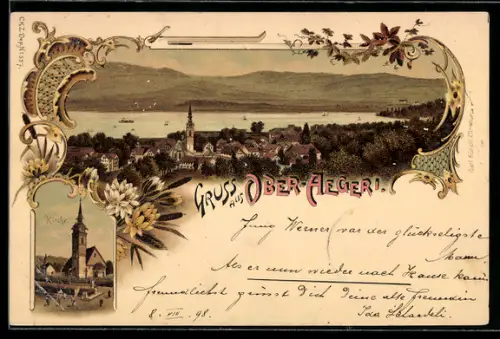 GRUSS aus OBER-AEGERI.
Kirche
Jung Werner war der glückseligste
Mann
Als er nun wieder nach Hause kam
freundlichst grüsst Dich Deine alte Freundin
8. VIII 98. Ida